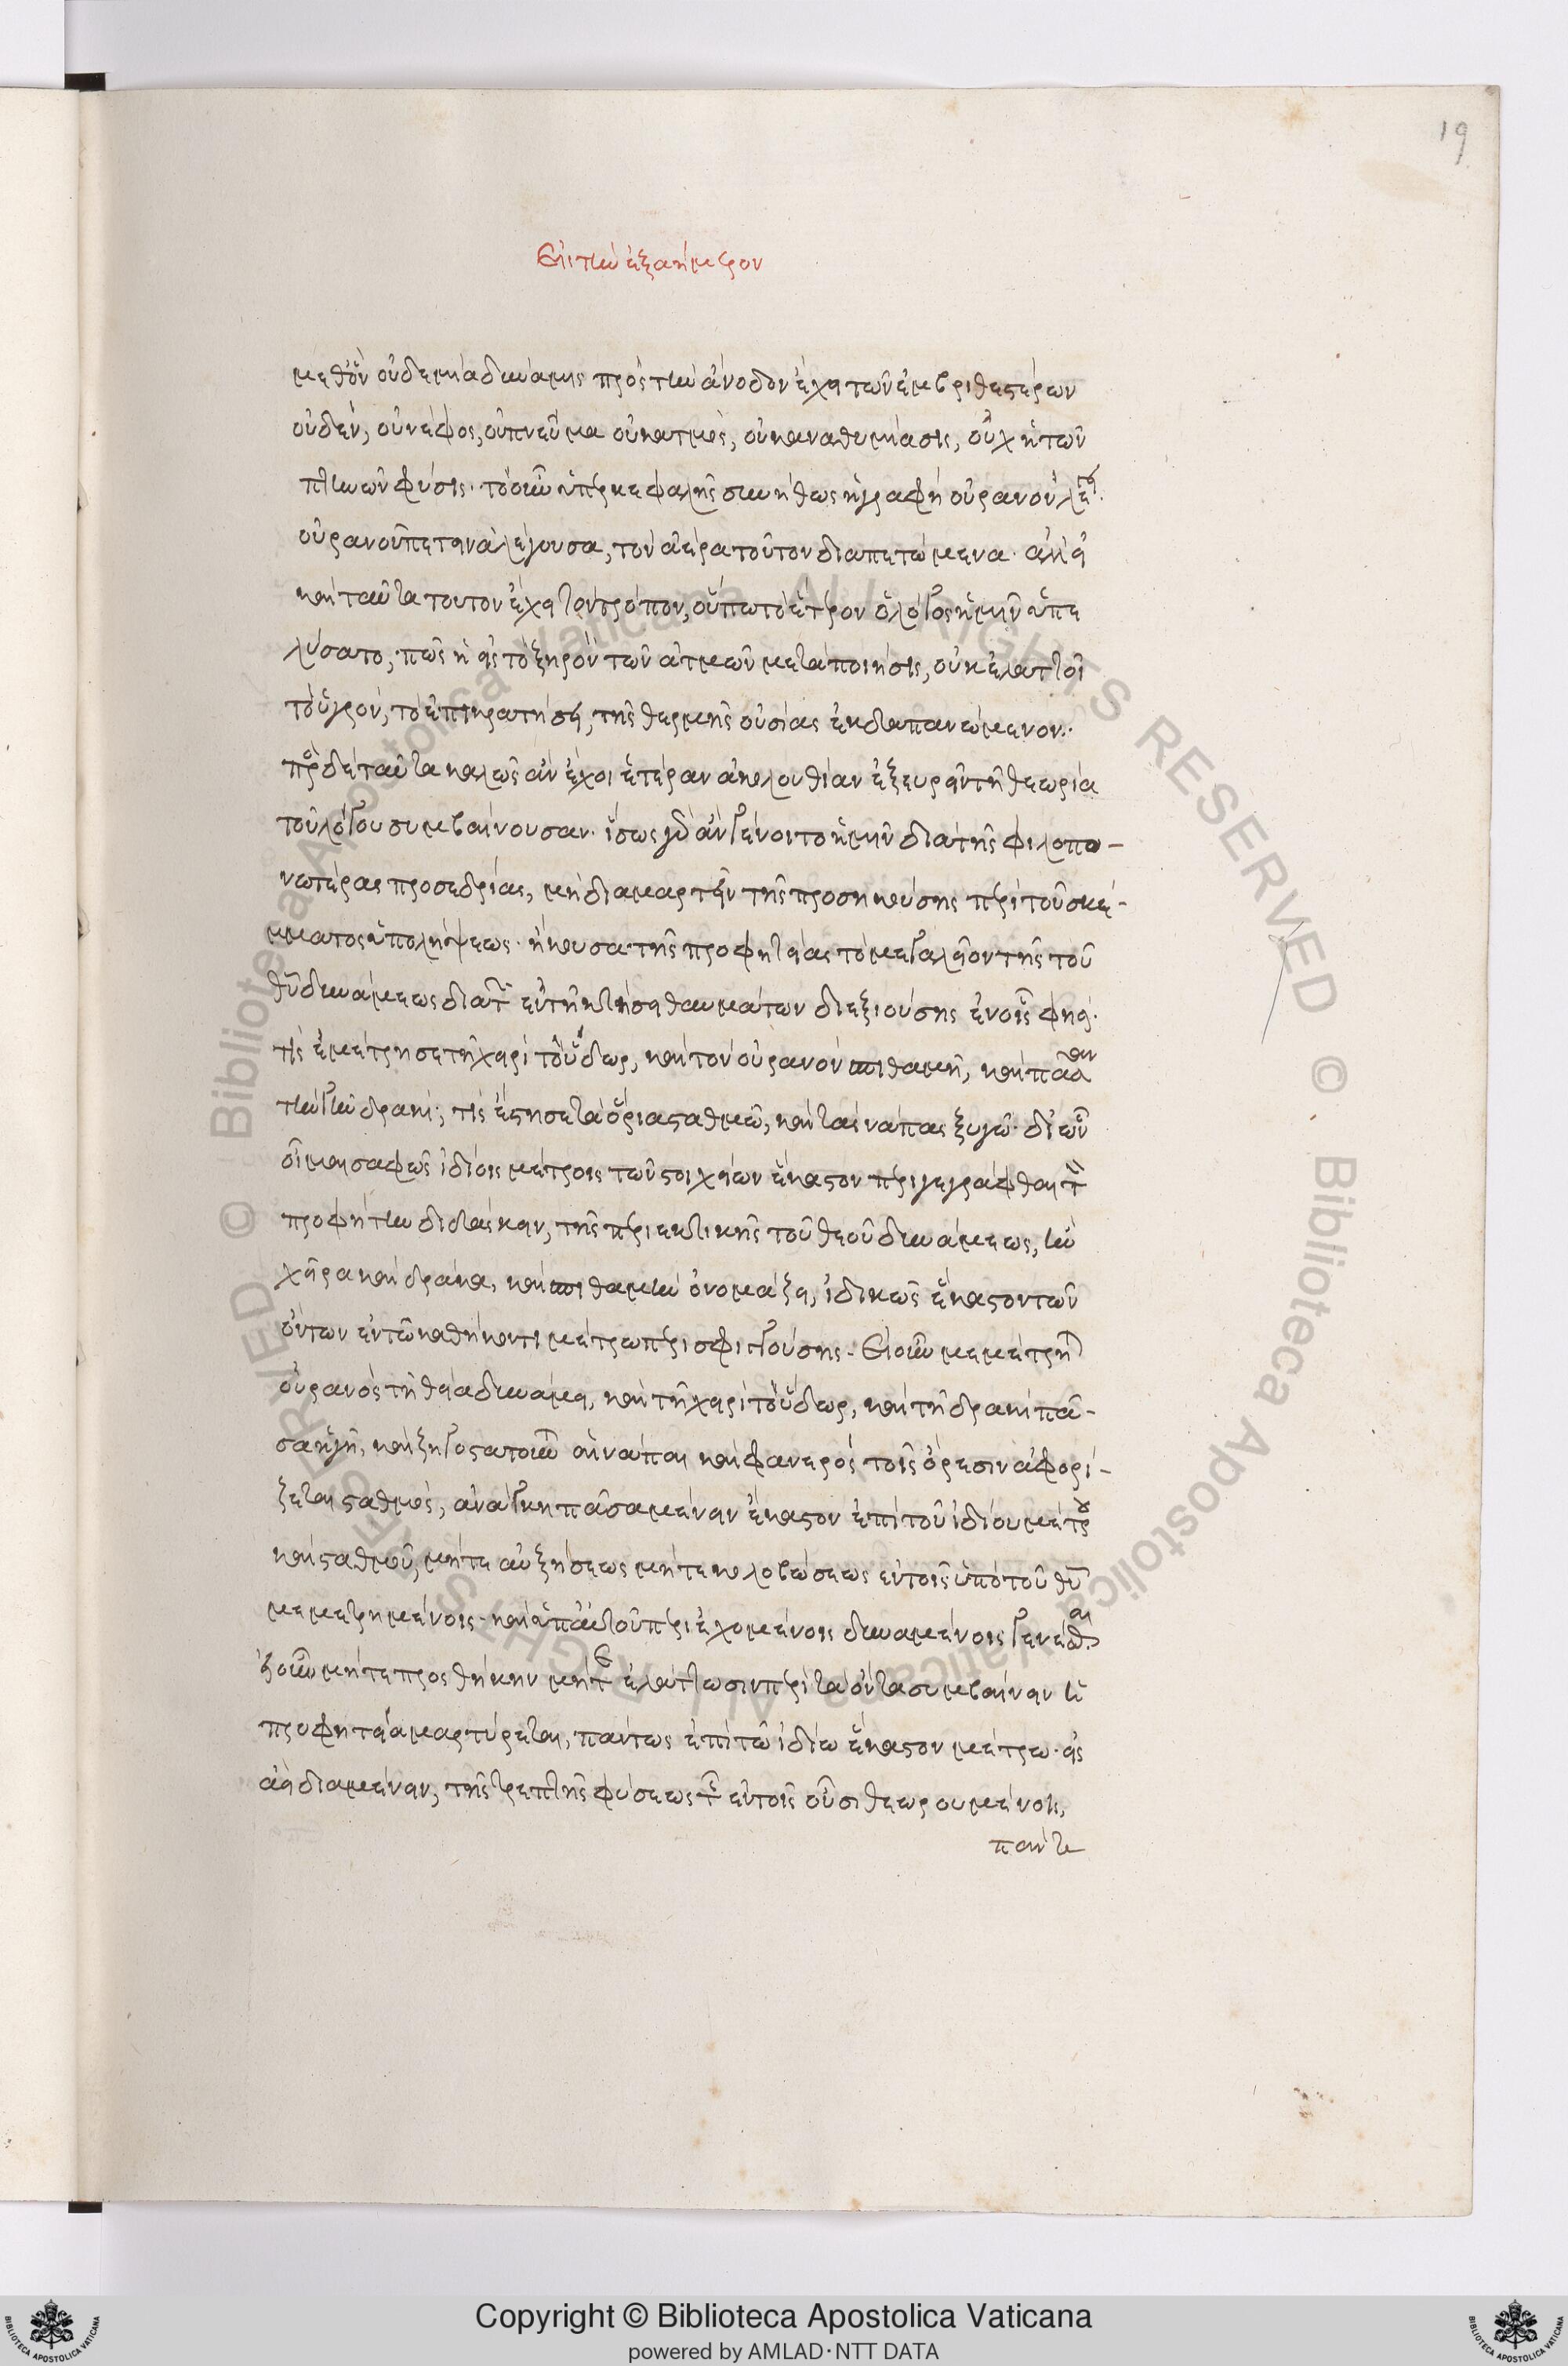 19
Εἰς τὴν ἑξαήμερον
μεθ' ὃν οὐδεμία δύναμις πρὸς τὴν ἄνοδον ἔχει τῶν ἐμβριθεστέρων
οὐδὲν, οὐ νέφος, οὐ πνεῦμα οὐκ ἀτμὸς, οὐκ ἀναθυμίασις, οὐχ ἡ τῶν
πτηνῶν φύσις. τὸ οὖν ὑπὲρ κεφαλῆς συνήθως ἡ γραφὴ οὐρανοῦ λέγει.
οὐρανοῦ πετεινὰ λέγουσα, τὸν ἀέρα τοῦτον διαπετώμενα. ἀλλ' εἰ
καὶ ταῦτα τοῦτον ἔχει τὸν τρόπον, οὔπω τὸ ἕτερον ὁ λόγος ἡμῖν ὑπε
λύσατο, πῶς ἡ εἰς τὸ ξηρὸν τῶν ἀτμῶν μεταποίησις, οὐκ ἐλαττοῖ
τὸ ὑγρόν, τὸ ἐπικρατήσει, τῆς θερμῆς οὐσίας ἐκδαπανώμενον.
πρὸς δὲ ταῦτα καλῶς ἂν ἔχοι ἑτέραν ἀκολουθίαν ἐξευρεῖν τῇ θεωρία
τοῦ λόγου συμβαίνουσαν. ἴσως γὰρ ἂν γένοιτο ἡμῖν διὰ τῆς φιλοπο-
νωτέρας προσεδρίας, μὴ διαμαρτεῖν τῆς προσηκούσης περὶ τοῦ σκέ-
μματος ὑπολήψεως. ἤκουσα τῆς προφητείας τὸ μεγαλεῖον τῆς τοῦ
θυ δυνάμεως διὰ τ ἐν τῇ κτήσει θαυμάτων διεξιούσης ἐν οἷς φησί.
τίς ἐμέτρησε τῇ χειρὶ τὸ ὕδωρ, καὶ τὸν οὐρανὸν σπιθαμῇ, καὶ πᾶσαν
τὴν γὴν δρακί; τίς ἔστησε τὰ ὄρια σταθμῶ, καὶ τὰς νάπας ζυγῶ. δι' ὧν
οἶμαι σαφῶς ἰδίοις μέτροις τῶν στοιχείων ἕκαστον περιγεγράφθαι τ
προφήτην διδάσκειν, τῆς περιεκτικῆς τοῦ θεοῦ δυνάμεως, ἣν
χεῖρα καὶ δράκα, καὶ σπιθαμὴν ὀνομάζει, ἰδικῶς ἕκαστον τῶν
ὄντων ἐν τῶ καθήκοντι μέτρω περισφιγγούσης. Εἰ οὖν μεμέτρη
οὐρανὸς τῇ θεία δυνάμει, καὶ τῇ χειρὶ τὸ ὕδωρ, καὶ τῇ δρακὶ πᾶ-
σα ἡ γῆ, καὶ ζυγοστατοῦν αἱ νάπαι καὶ φανερὸς τοῖς ὄρεσιν ἀφορί-
ζεται σταθμὸς, ἀνάγκη πᾶσα μένειν ἕκαστον ἐπὶ τοῦ ἰδίου μέτρου
καὶ σταθμοῦ, μήτε αὐξήσεως μήτε κολοβώσεως ἐν τοῖς ὑπὸ τοῦ θυ
μεμετρημένοις. καὶ ὑπ' αὐτοῦ περιεχομένοις δυναμένοις γενέσθαι.
εἰ οὖν μήτε προσθήκην μήτε ἐλάττωσιν περὶ τὰ ὄντα συμβαίνειν ἡ
προφητεία μαρτύρεται, πάντως ἐπὶ τῶ ἰδίω ἕκαστον μέτρω. εἰς
ἀεὶ διαμένειν, τῆς τρεπτῆς φύσεως τ ἐν τοῖς οὖσι θεωρουμένοις,
πάντα
Copyright © Biblioteca Apostolica Vaticana
powered by AMLAD · NTT DATA